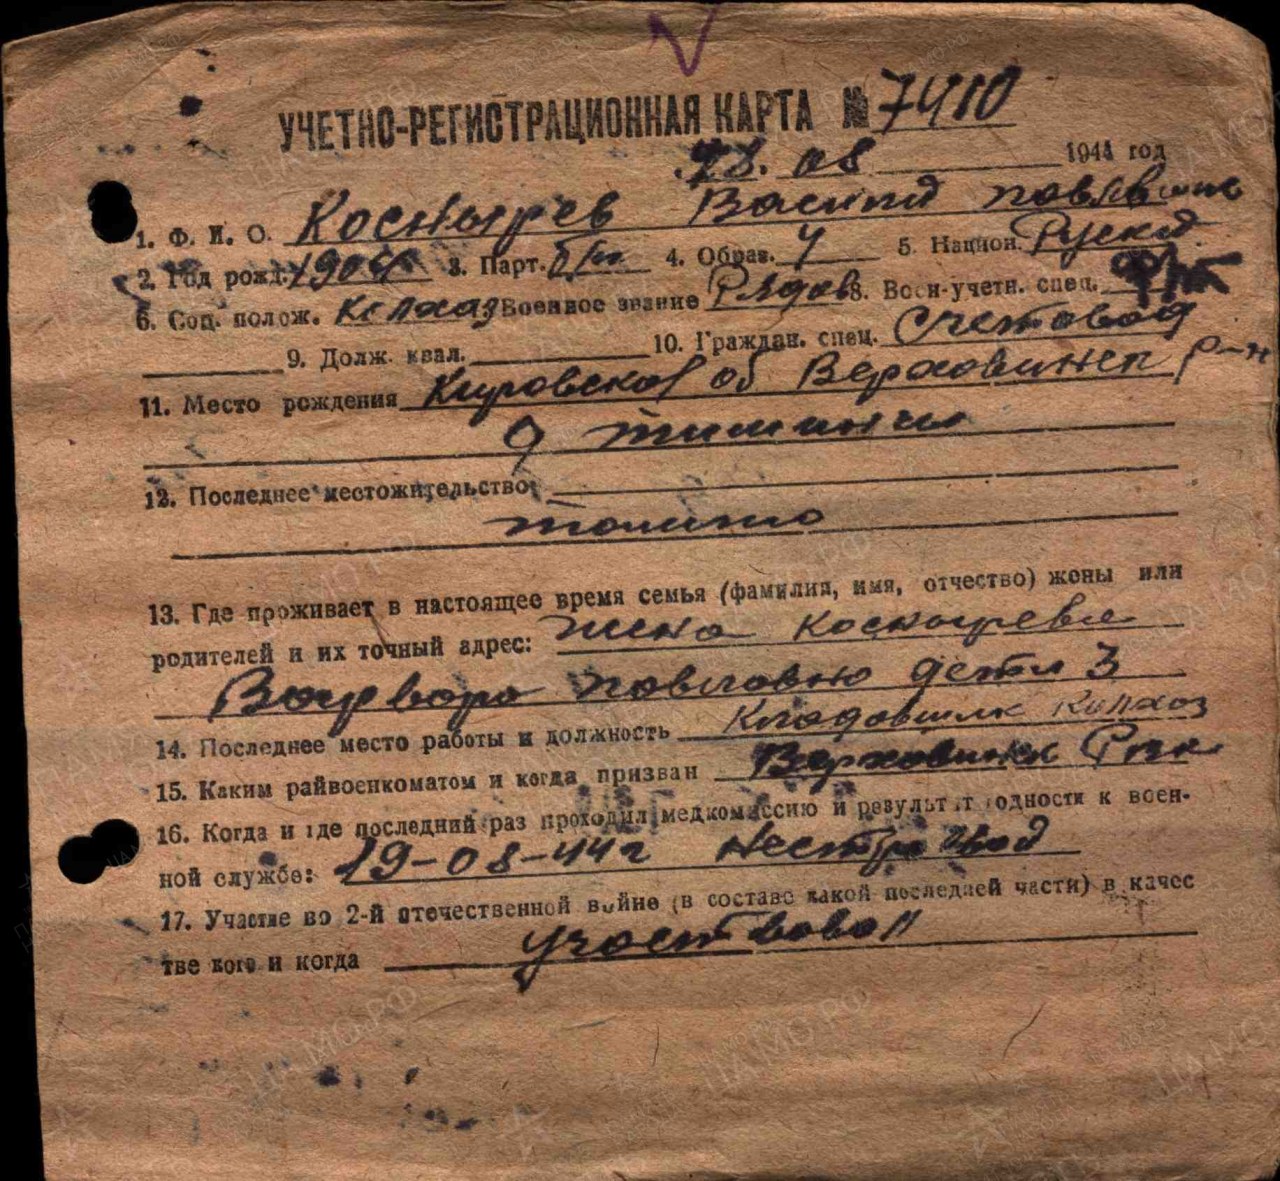 УЧЕТНО-РЕГИСТРАЦИОННАЯ КАРТА № 7410
28. 08. 1944 год
1. Ф. И. О. Коснырев Васили Павлович
2. Год рожд. 1904 3. Парт. б/п 4. Образ. 4 5. Национ. Руский
6. Соц. полож. Колхоз Военное звание Рядов 8. Воен-учетн. спец.
9. Долж. квал. 10. Граждан. спец. Счетовод
11. Место рождения Кировская об Верховинск р-н
д Тиминцы
12. Последнее местожительство
13. Где проживает в настоящее время семья (фамилия, имя, отчество) жоны или
родителей и их точный адрес: жена Коснырева
Варвара Павловно дети 3
14. Последнее место работы и должность Кладовшик Колхоз
15. Каким райвоенкоматом и когда призван Верховинск Рвк
16. Когда и где последний раз проходил медкомиссию и результат годности к воен-
ной службе: 19-08-44г нестроевод
17. Участие во 2-й отечественной войне (в составе какой последней части) в качес
тве кого и когда участвовал
ЦА МО РФ